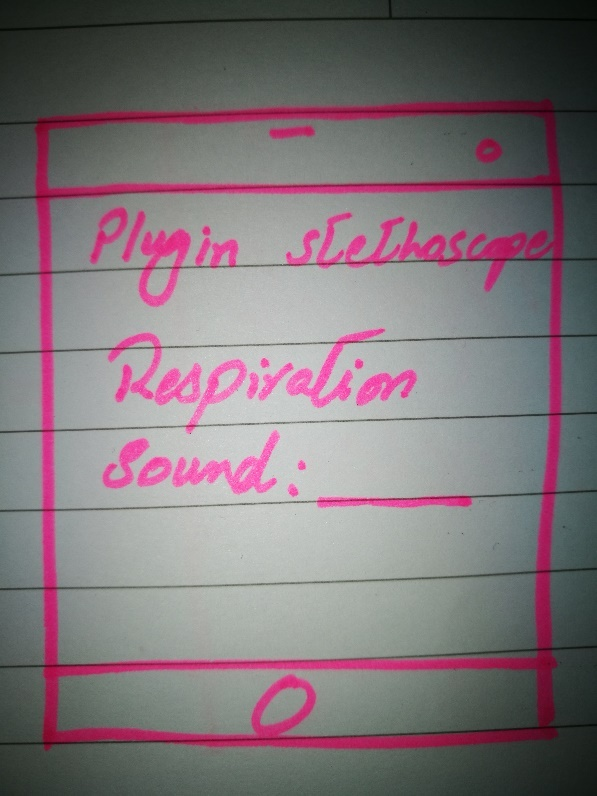 Plugin stethoscope
Respiration
Sound: ______